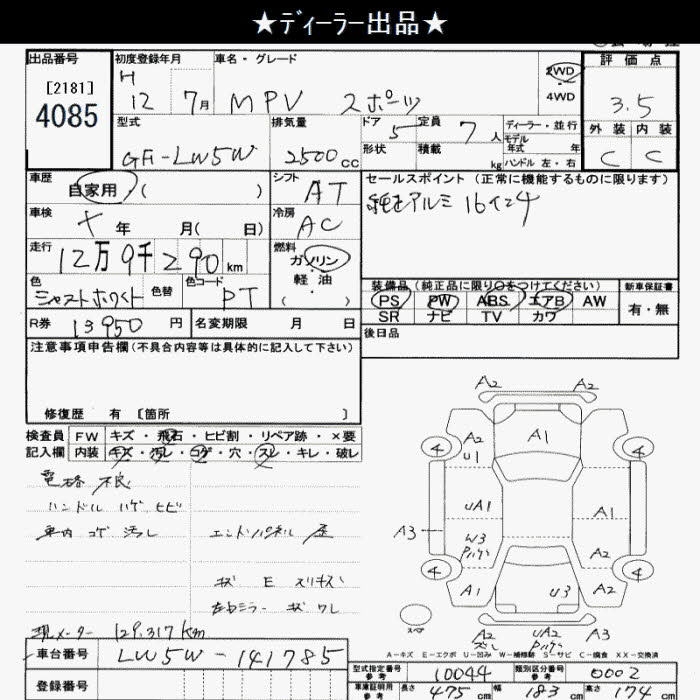 ★ディーラー出品★
出品番号 初度登録年月 車名・グレード 評価点
[2181] H 2WD
4085 12 7月 MPV スポーツ 4WD 3.5
型式 排気量 ドア 5 定員 7人 ディーラー・並行 外装 内装
GF-LW5W 2500cc 形状 積載 kg モデル年式 年 C C
ハンドル 左・右
車歴 シフト セールスポイント (正常に機能するものに限ります)
自家用 ( ) AT 純正アルミ 16インチ
車検 年 月( 日) 冷房 AC
走行 12万9千290km 燃料 ガソリン
軽油
( )
色 色替 色コード PT 装備品 (純正品に限り○をつけてください) 新車保証書
PS PW ABS エアB AW 有・無
SR ナビ TV カワ
R券 13950円 名変期限 月 日 後日品
注意事項申告欄(不具合内容等は具体的に記入して下さい)
修復歴 有 [箇所 ]
検査員 FW キズ・飛石・ヒビ割・リペア跡・×要
記入欄 内装 キズ・汚レ・コゲ・穴・スレ・キレ・破レ
不良
ハンドル ハゲ ヒビ
車内 コゲ 汚レ エンドパネル
キズ E スリキズ
現メーター 129,317km
A2 A2
A1
4 A2 U1 4
UA1 A1
A3 W3 A2
4 A1 U3 A2 4
スペア A2 UA2 A3
A-キズ E-エクボ U-凹み W-補修跡 S-サビ C-腐食 XX-交換済
車台番号 LW5W-141785
登録番号
型式指定番号 参考 10044 類別区分番号 参考 0002
車庫証明用 参考 長さ 475cm 幅 183cm 高さ 174cm